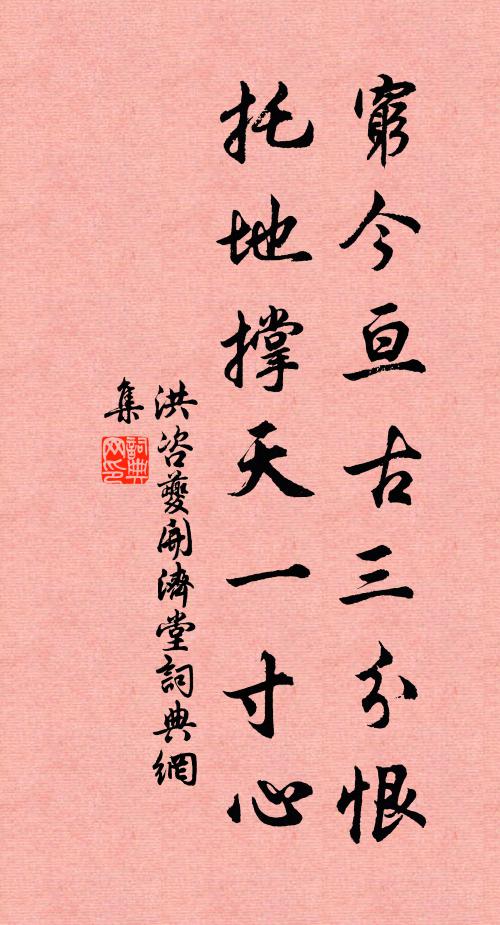 窮今亘古三分恨
托地撐天一寸心
洪咨夔開濟堂詞典網
集
詞典
网印